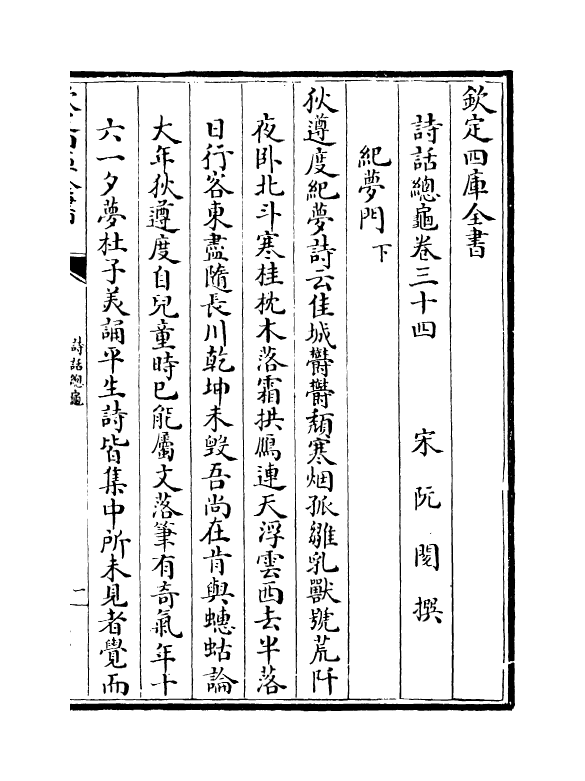 欽定四庫全書
詩話總龜卷三十四
宋 阮閱 撰
紀夢門下
狄遵度紀夢詩云佳城鬱鬱頽寒烟孤雛乳獸號荒阡
夜卧北斗寒桂枕木落霜拱鴈連天浮雲西去半落
日行客東盡隨長川乾坤未毁吾尚在肯與蟪蛄論
大年狄遵度自兒童時已能屬文落筆有奇氣年十
六一夕夢杜子羙誦平生詩皆集中所未見者覺而
詩話總龜